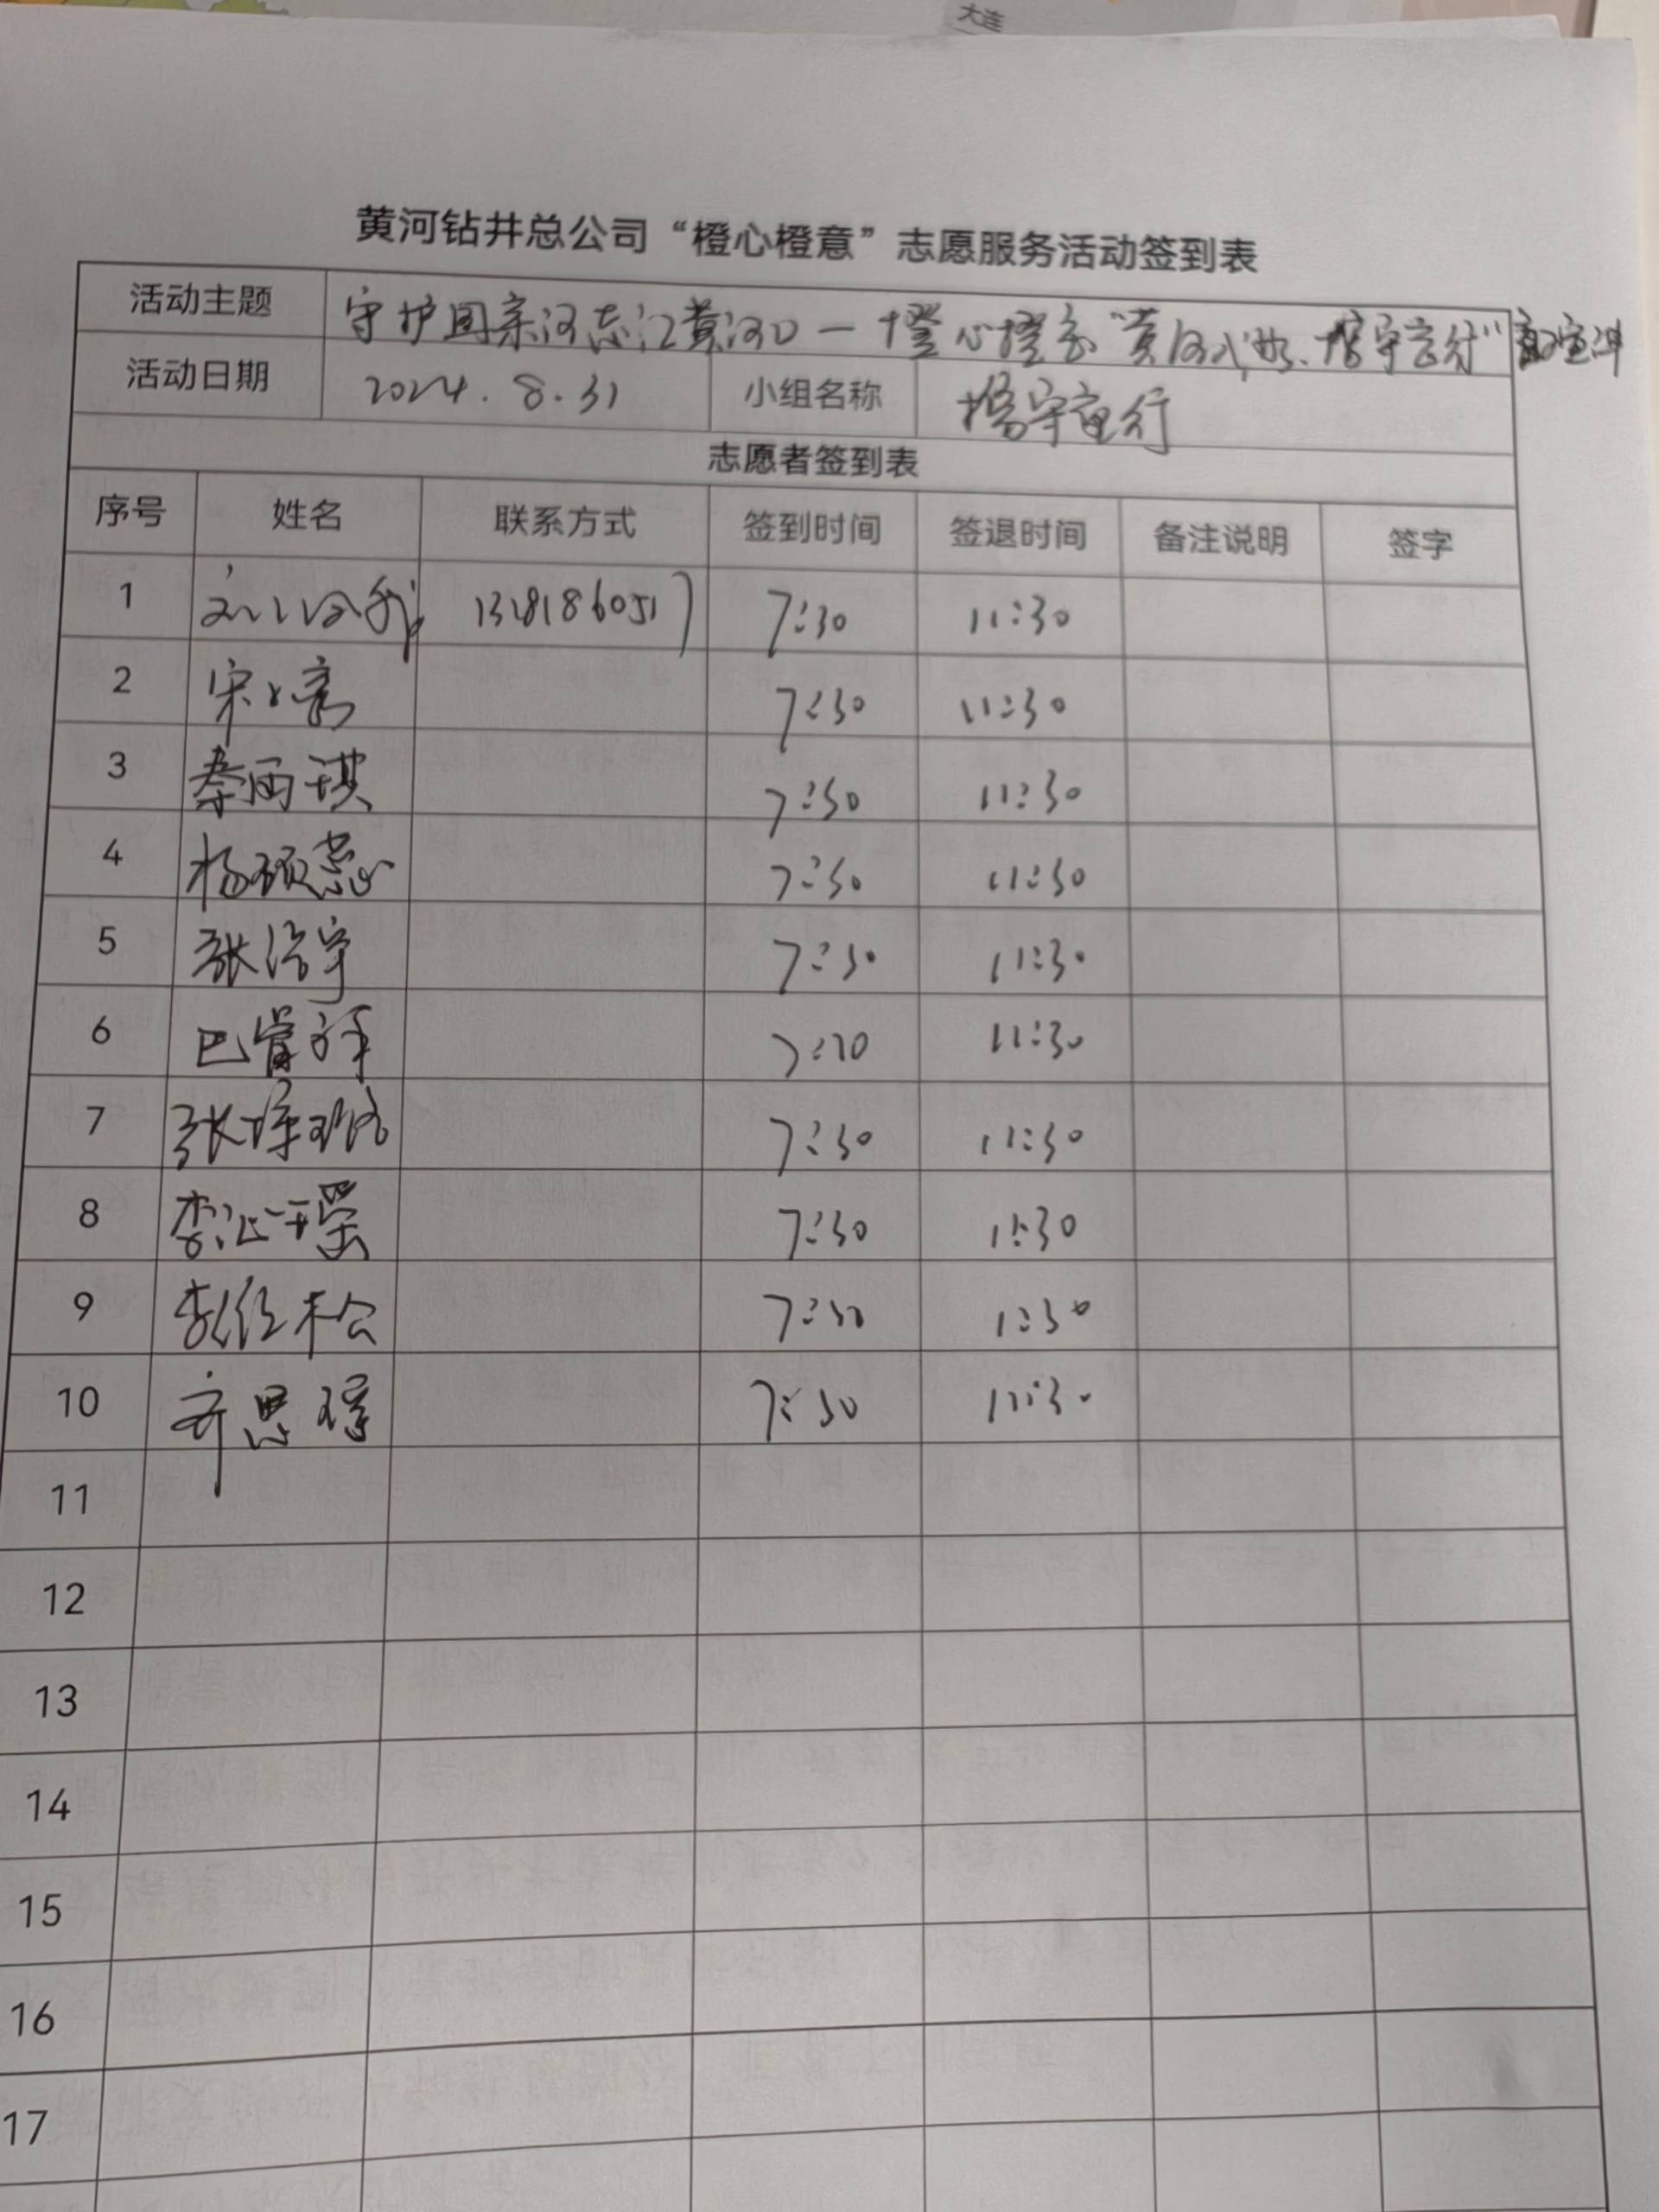 大连
黄河钻井总公司“橙心橙意”志愿服务活动签到表
活动主题 守护 黄河口一橙心橙意“黄河 守言行”
活动日期 2024.8.31 小组名称 守言行
志愿者签到表
序号 姓名 联系方式 签到时间 签退时间 备注说明 签字
1 13181860517 7:30 11:30
2 宋 7:30 11:30
3 秦雨琪 7:30 11:30
4 杨硕蕊 7:30 11:30
5 张浩宇 7:30 11:30
6 巴 7:30 11:30
7 张 7:30 11:30
8 李 瑶 7:30 11:30
9 李 松 7:30 1:30
10 齐思瑶 7:30 11:30
11
12
13
14
15
16
17